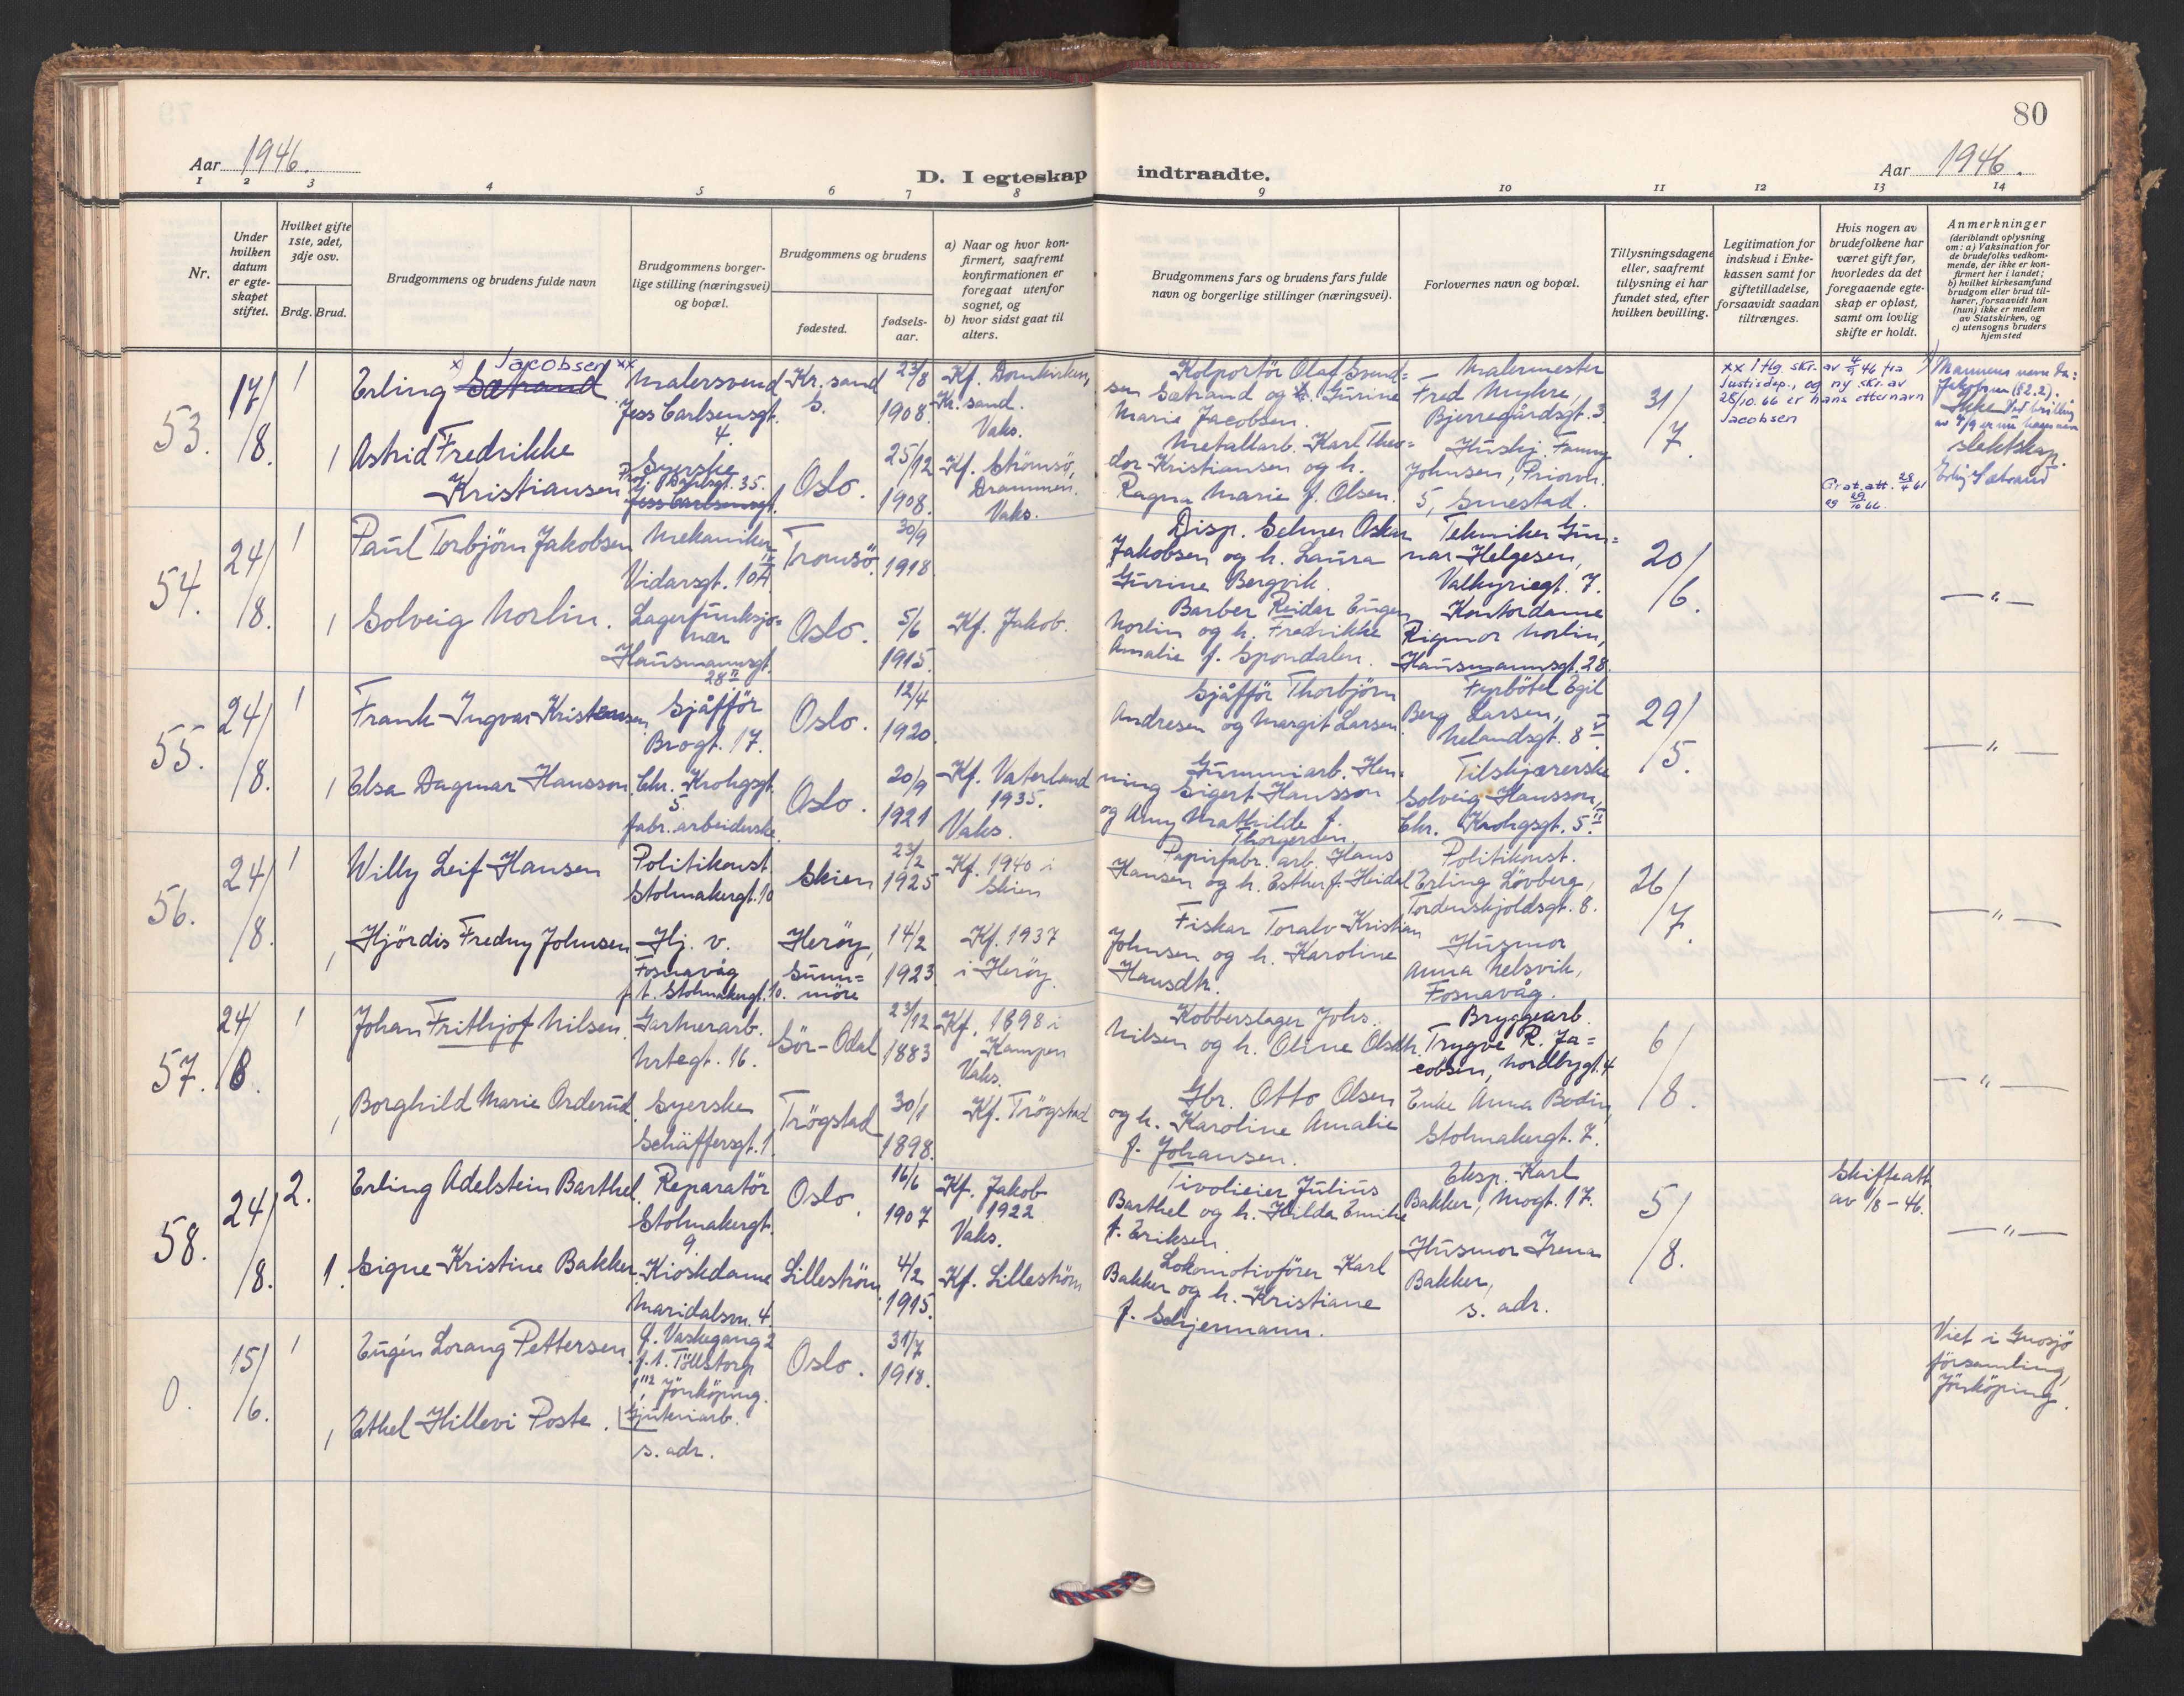 80
Aar 1946.
D. I egteskap indtraadte.
Aar 1946.
1 2 3 4 5 6 7 8 9 10 11 12 13 14
Nr.
Under hvilken datum er egte-skapet stiftet.
Hvilket gifte 1ste, 2det, 3dje osv.
Brdg. Brud.
Brudgommens og brudens fulde navn
Brudgommens borger-lige stilling (næringsvei) og bopæl.
Brudgommens og brudens
fødested.
fødsels-aar.
a) Naar og hvor kon-firmert, saafremt konfirmationen er foregaat utenfor sognet, og
b) hvor sidst gaat til alters.
Brudgommens fars og brudens fars fulde navn og borgerlige stillinger (næringsvei).
Forlovernes navn og bopæl.
Tillysningsdagene eller, saafremt tillysning ei har fundet sted, efter hvilken bevilling.
Legitimation for indskud i Enke-kassen samt for giftetilladelse, forsaavidt saadan tiltrænges.
Hvis nogen av brudefolkene har været gift før, hvorledes da det foregaaende egte-skap er opløst, samt om lovlig skifte er holdt.
Anmerkninger
(deriblandt oplysning om: a) Vaksination for de brudefolks vedkom-mende, der ikke er kon-firmert her i landet; b) hvilket kirkesamfund brudgom eller brud til-hører, forsaavidt han (hun) ikke er medlem av Statskirken, og c) utensogns bruders hjemsted
53.
17/8.
1
x) Jacobsen xx
Erling Sætrand
Malersvend
Jess Carlsensgt.
4.
Kr.sand
S.
23/8
1908.
Kf. Domkirken,
Kr.sand.
Vaks.
Kolportör Olaf Svend=
sen Sætrand og h. Gurine
Marie Jacobsen.
Malermester
Fred Myhre,
Bjerregårdsgt. 3
31/7.
xx I flg. skr. av 4/9 46 fra
Justisdep., og ny skr. av
28/10.66 er hans etternavn
Jacobsen
Mannens navn
Jakobsen (§2.2).
Ikke
slektskap.
Erling Sætrand
1
Astrid Fredrikke
Kristiansen
Syerske
35.
Jess Carlsensgt.
Oslo.
25/12
1908.
Kf. Strömsö,
Drammen.
Vaks.
Metallarb. Karl Theo=
dor Kristiansen og h.
Ragna Marie f. Olsen.
Hushj. Fanny
Johnsen, Priorv.
5, Smestad.
Grat.att. 28/4 61
og 29/10 66.
54.
24/8.
1
Paul Torbjörn Jakobsen
Mekaniker
Vidarsgt. 10A IV
Tromsö.
30/9
1918.
Disp. Selmer Oskar
Jakobsen og h. Laura
Gurine Bergvik.
Tekniker Gun=
nar Helgesen,
Valkyriegt. 7.
20/6.
— " —
1
Solveig Norlin.
Lagerfunksjo=
nær
Hausmannsgt.
28 II
Oslo.
5/6
1915.
Kf. Jakob.
Barber Reidar Eugen
Norlin og h. Fredrikke
Amalie f. Spondalen.
Kontordame
Rigmor Norlin,
Hausmannsgt. 28.
55.
24/8.
1
Frank Ingvar Kristensen
Sjåffør
Brogt. 17.
Oslo.
12/4
1920.
Sjåffør Thorbjörn
Andresen og Margit Larsen
Fyrböter Egil
Berg Larsen,
Helandsgt. 8
29/5.
— " —
1
Elsa Dagmar Hansson
Chr. Krohgsgt.
5.
fabr.arbeiderske
Oslo.
20/9
1921
Kf. Vaterland
1935.
Vaks.
Gummiarb. Hen=
ning Sigert Hansson
og Amy Mathilde f.
Thorgersen.
Tilskjærerske
Solveig Hansson,
Chr. Krohgsgt. 5. II
56.
24/8.
1
Willy Leif Hansen
Politikonst.
Stolmakergt. 10
Skien
23/2
1925
Kf. 1940 i
Skien
Papirfabr. arb. Hans
Hansen og h. Esther f. Heidal
Politikonst.
Erling Lövberg,
Tordenskjoldsgt. 8.
26/7.
— " —
1
Hjördis Fredny Johnsen
Hj. v.
Fosnavåg
p.t. Stolmakergt. 10.
Herøy,
Sunn=
møre
14/2
1923.
Kf. 1937
i Herøy.
Fisker Toralv Kristian
Johnsen og h. Karoline
Hansdtr.
Husmor
Anna Nelsvik,
Fosnavåg.
57.
24/8.
1
Johan Frithjof Nilsen.
Gartnerarb.
Urtegt. 16.
Sör-Odal
23/12
1883
Kf. 1898 i
Kampen
Vaks.
Kobberslager Johs.
Nilsen og h. Oline Olsdtr.
Bryggearb.
Trygve R. Ja=
cobsen, Nordbygt. 4
6/8.
— " —
1
Borghild Marie Orderud
Syerske
Schäffersgt. 1.
Trögstad
30/1
1898.
Kf. Trögstad
Gbr. Otto Olsen
og h. Karoline Amalie
f. Johansen.
Enke Anna Bodin,
Stolmakergt. 7.
58.
24/8.
2.
Erling Adelstein Barthel
Reparatör
Stolmakergt.
9.
Oslo.
16/6
1907
Kf. Jakob
1922
Vaks.
Tivolieier Julius
Barthel og h. Hilda Emilie
f. Eriksen.
Eksp. Karl
Bakker, Mogt. 17.
5/8.
Skifteatt.
av 1/8-46.
— " —
1.
Signe Kristine Bakker
Kioskdame
Maridalsvn. 4.
Lilleström
4/2
1915.
Kf. Lilleström
Lokomotivfører Karl
Bakker og h. Kristiane
f. Schjermann.
Husmor Irena
Bakker,
s. adr.
0.
15/6.
1
Eugén Lorang Pettersen
f. Vaskegang 2
p.t. Töllstorp
1"2, Jönköping.
Oslo.
31/7
1918.
Viet i Gnosjö
församling,
Jönköping.
1
Ethel Hillevi Poste.
Gjuteriarb.
s. adr.